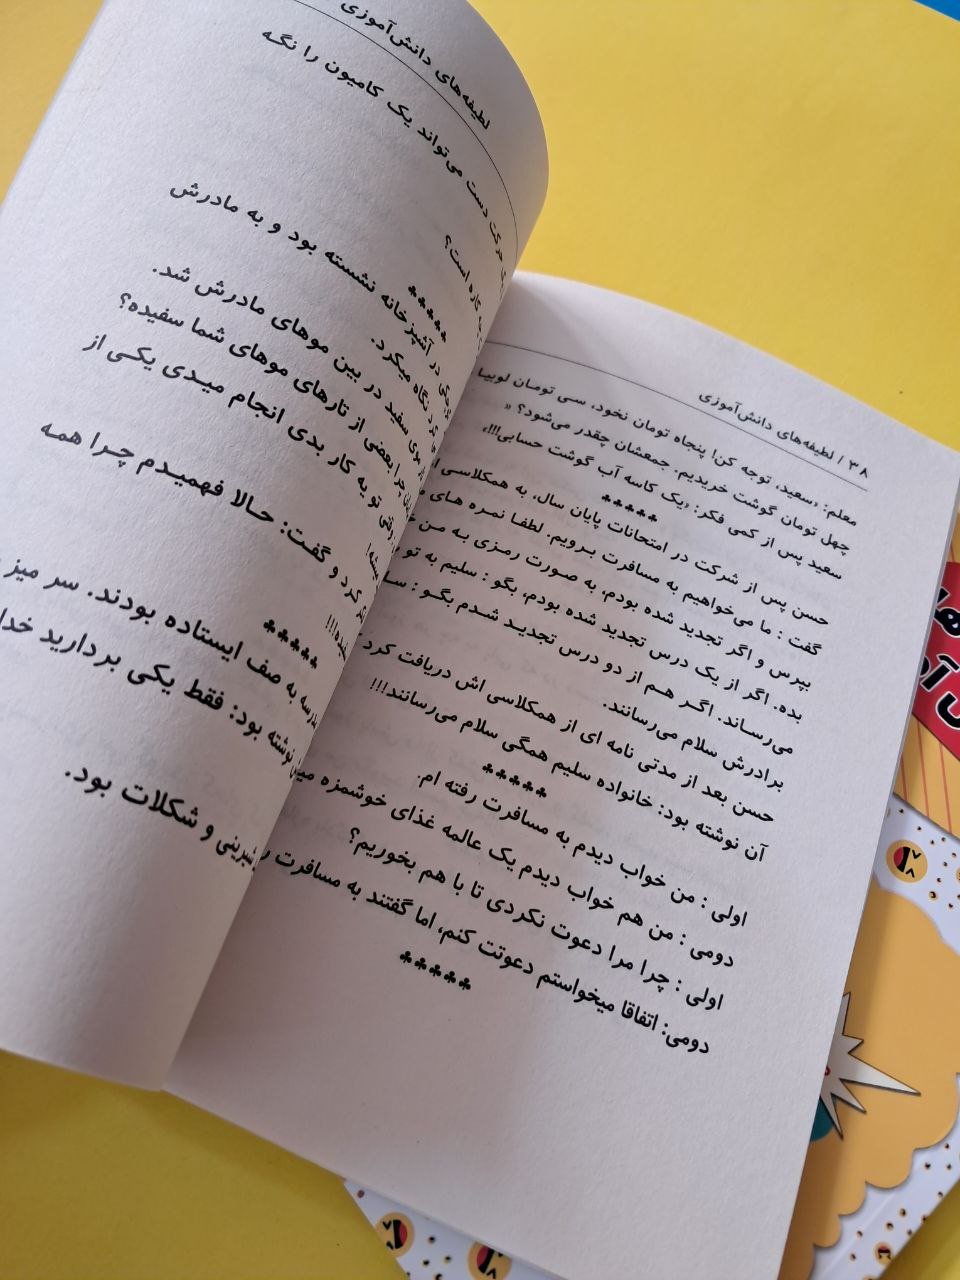 لطیفه‌های دانش‌آموزی
حرکت دست می‌تواند یک کامیون را نگه
کاره است؟
♣♣♣♣♣
در آشپزخانه نشسته بود و به مادرش
نگاه میکرد.
موی سفید در بین موهای مادرش شد.
چرا بعضی از تارهای موهای شما سفیده؟
تو یه کار بدی انجام میدی یکی از
میشه!
کرد و گفت: حالا فهمیدم چرا همه
سفیده!!!
♣♣♣♣♣
مدرسه به صف ایستاده بودند. سر میز
نوشته بود: فقط یکی بردارید خدا
شیرینی و شکلات بود.
۳۸ | لطیفه‌های دانش‌آموزی
معلم: «سعید، توجه کن! پنجاه تومان نخود، سی تومان لوبیا
چهل تومان گوشت خریدیم. جمعشان چقدر می‌شود؟ «
سعید پس از کمی فکر: «یک کاسه آب گوشت حسابی!!!»
♣♣♣♣♣
حسن پس از شرکت در امتحانات پایان سال، به همکلاسی
گفت : ما می‌خواهیم به مسافرت برویم. لطفا نمره های
بپرس و اگر تجدید شده بودم، به صورت رمزی به من
بده. اگر از یک درس تجدید شده بودم، بگو : سلیم به تو
می‌رساند. اگر هم از دو درس تجدید شدم بگو :
برادرش سلام می‌رسانند.
حسن بعد از مدتی نامه ای از همکلاسی اش دریافت کرد
آن نوشته بود: خانواده سلیم همگی سلام می‌رسانند!!!
♣♣♣♣♣
اولی : من خواب دیدم به مسافرت رفته ام.
دومی : من هم خواب دیدم یک عالمه غذای خوشمزه
اولی : چرا مرا دعوت نکردی تا با هم بخوریم؟
دومی: اتفاقا میخواستم دعوتت کنم، اما گفتند به مسافرت
♣♣♣♣♣